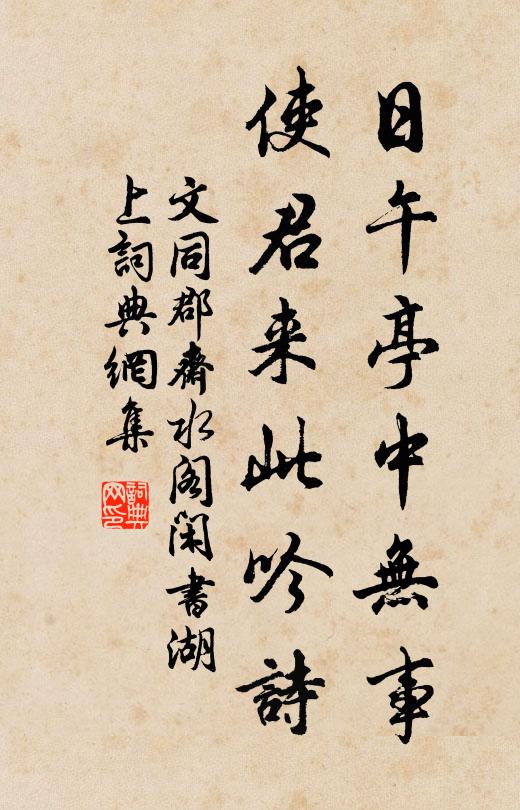 日午亭中無事
使君来此吟詩
文同郡齋水阁閑書湖
上詞典網集
詞典
网印